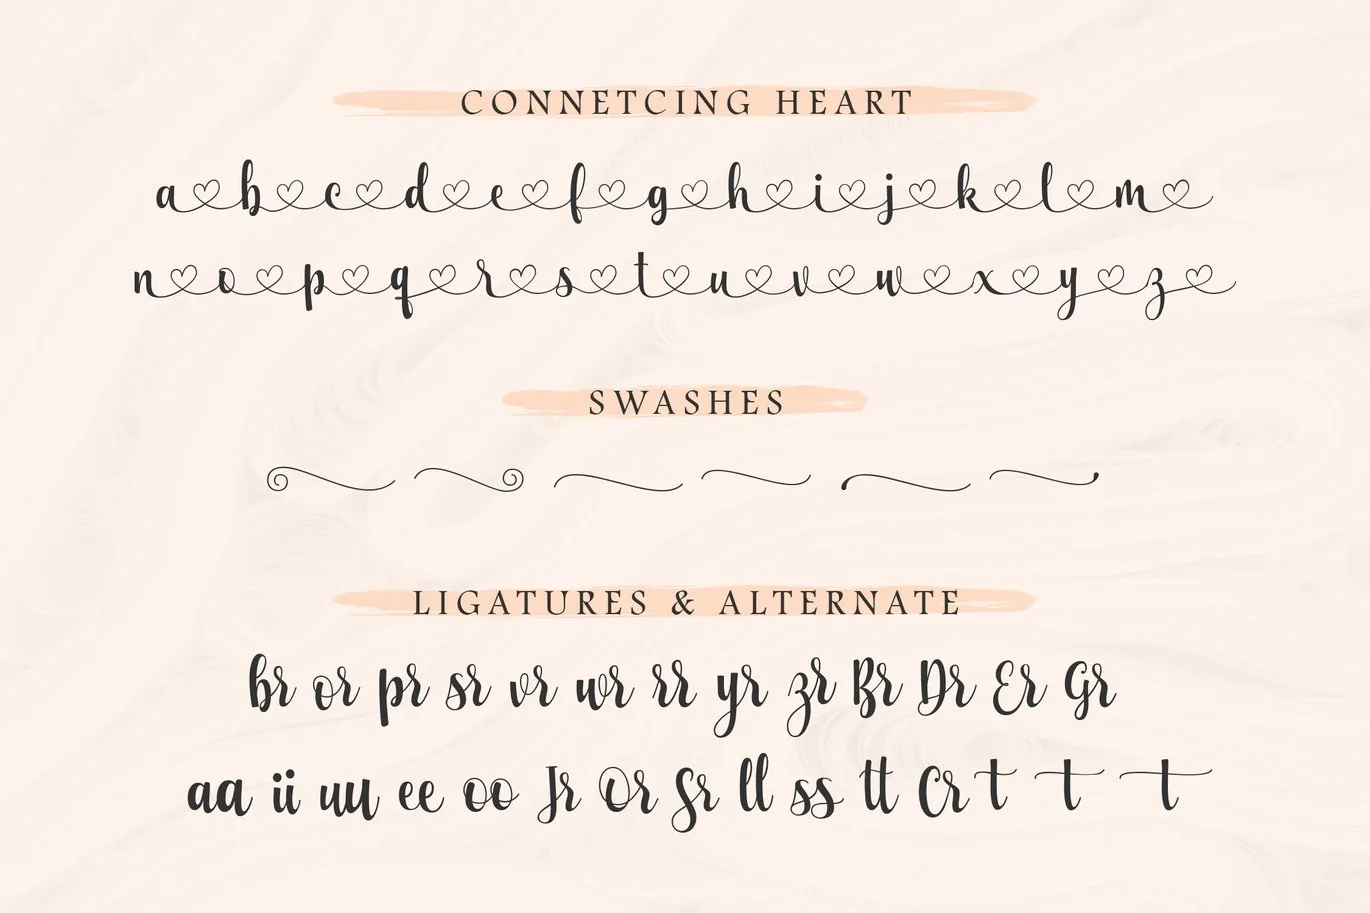 CONNETCING HEART
a b c d e f g h i j k l m
n o p q r s t u v w x y z
SWASHES
LIGATURES & ALTERNATE
br or pr sr vr wr rr yr zr Br Dr Er Gr
aa ii uu ee oo Jr Or Sr ll ss tt Cr t t t